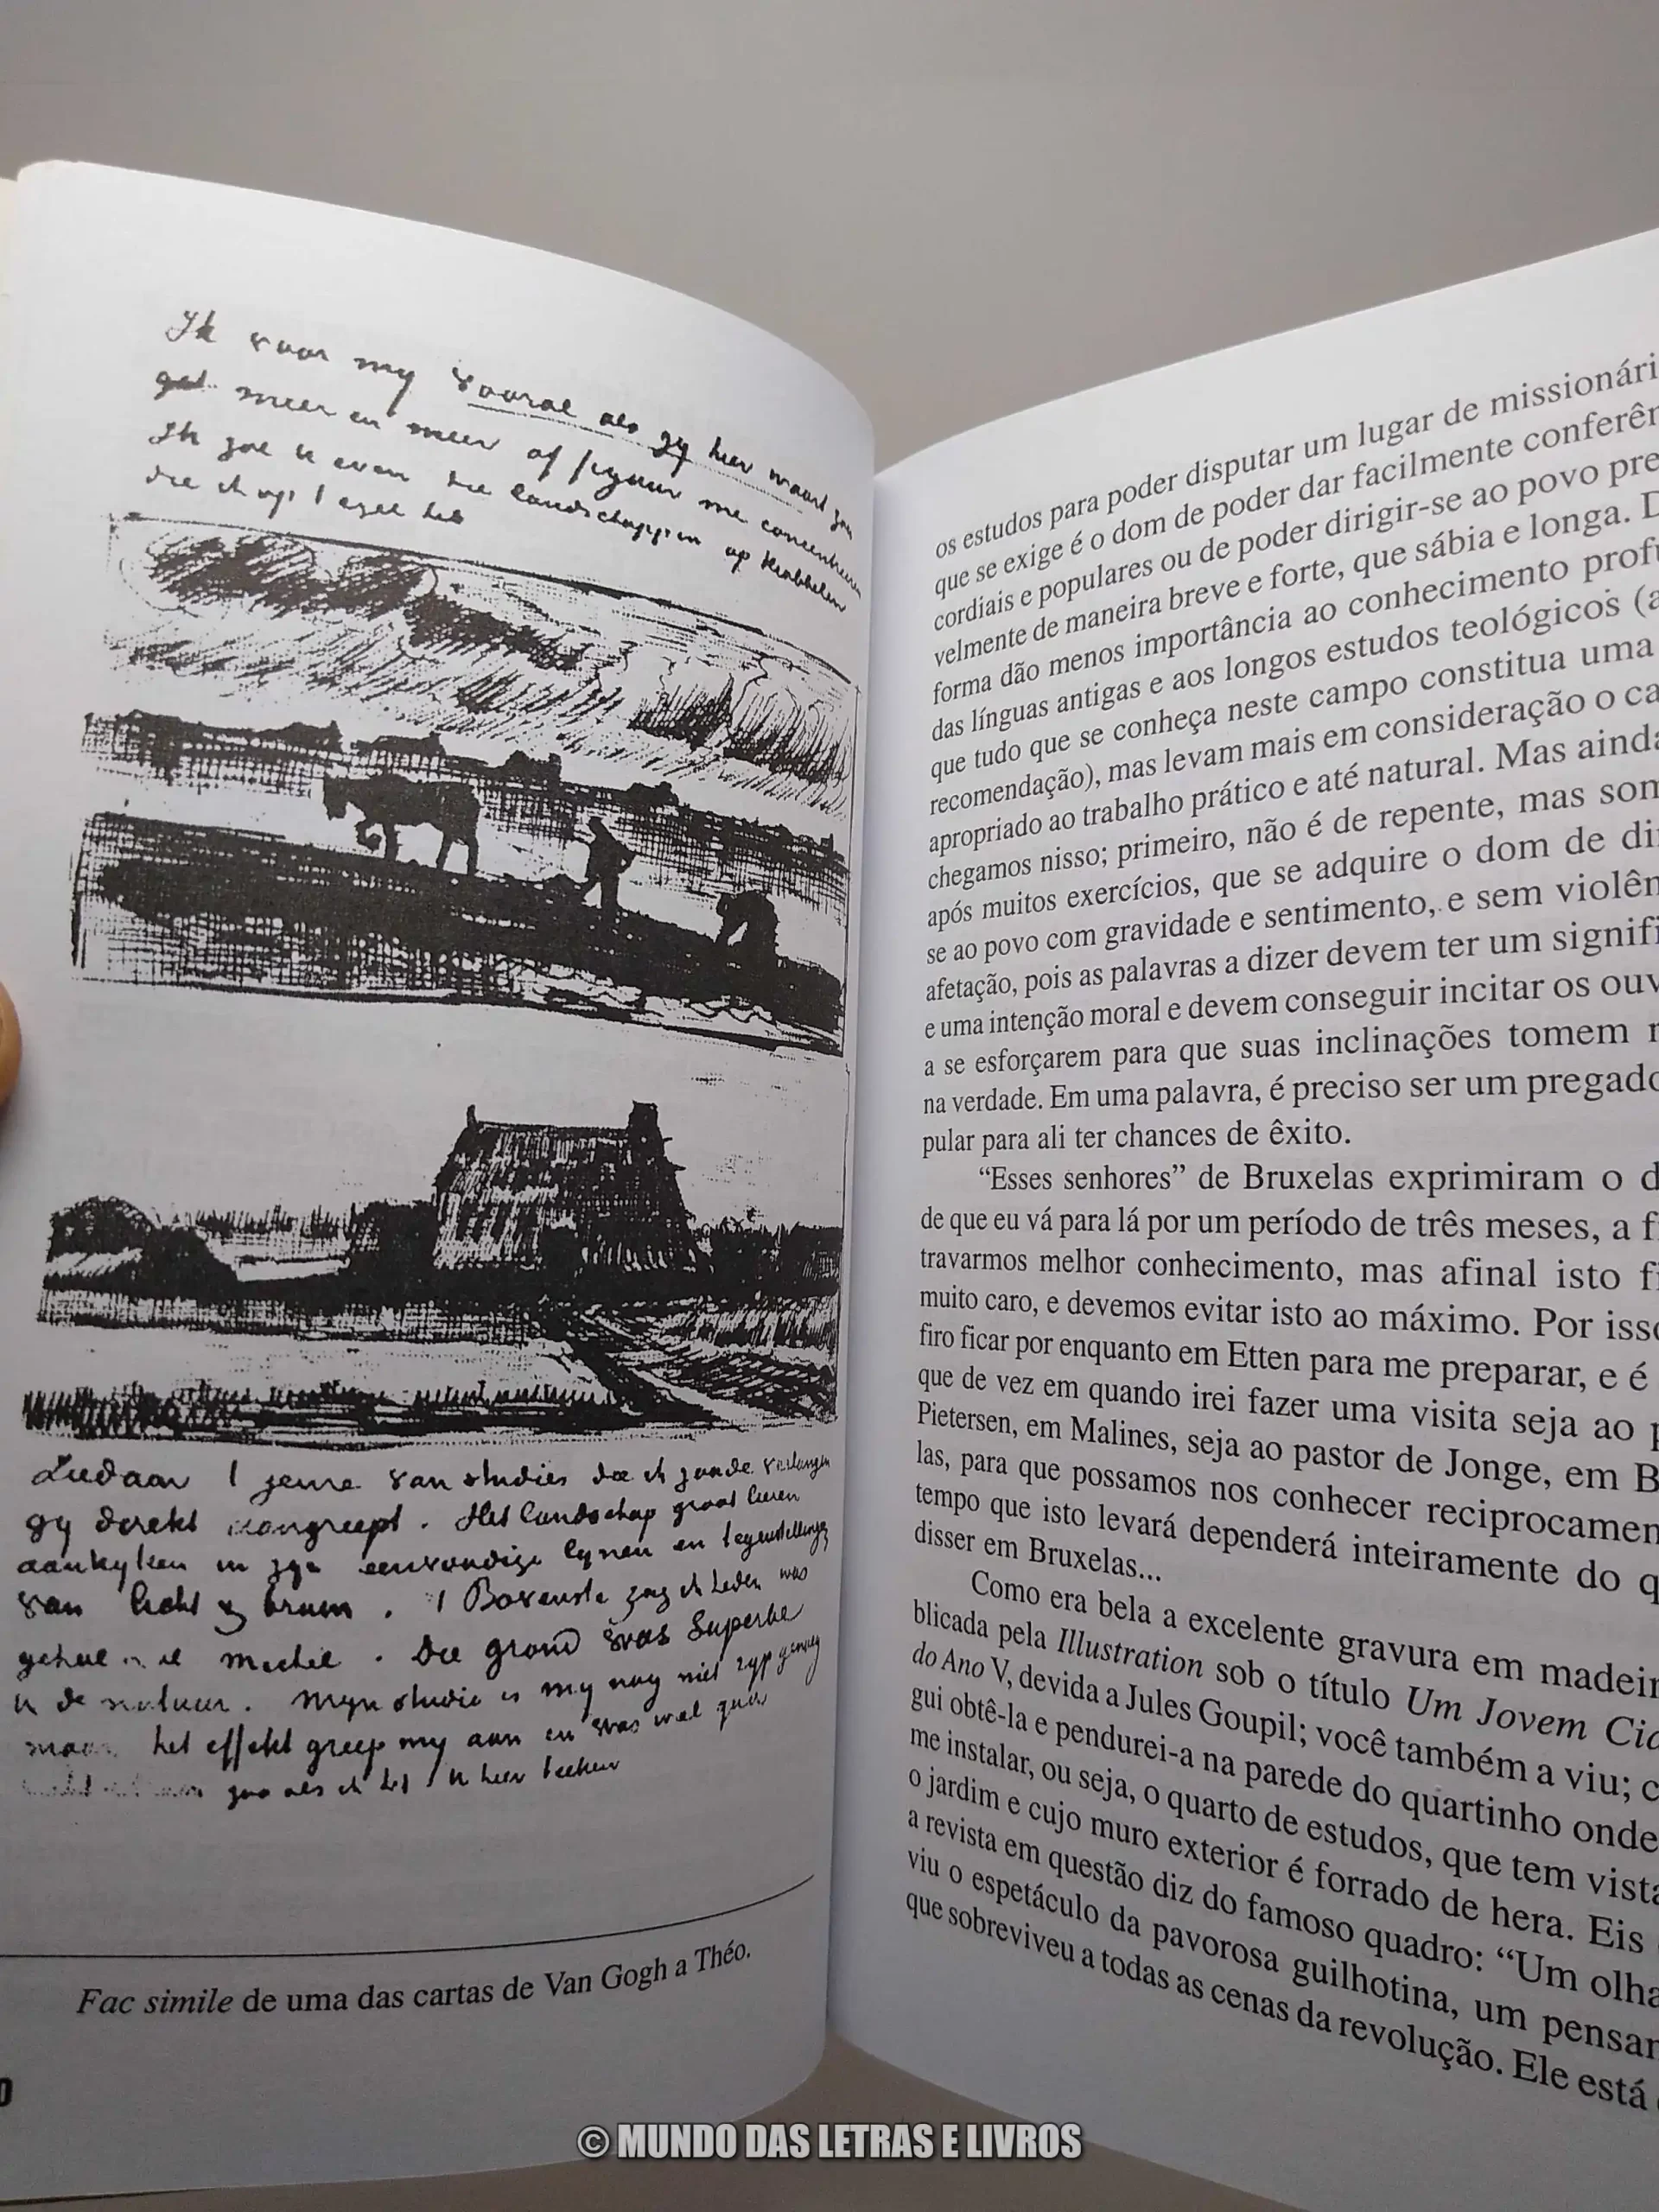 Ik voor my vooral als gy hier waart zou
meer en meer of figuur me concentreren
Ik zal u even die landschappen op krabbelen
die ik op 't ezel heb
Ludaar 't genre van studies die ik zoude verlangen
gy direkt aangreept. Het landschap groot leeren
aankyken in zyn eenvoudige lynen en tegenstellingen
van licht & bruin. 't Bovenste zag ik heden was
geheel Michel. Die grond was superbe
in de natuur. Myn studie is my nog niet ryp genoeg
maar het effekt greep my aan en was wel qua
zoo als ik het u hier teeken
Fac simile de uma das cartas de Van Gogh a Théo.
0
os estudos para poder disputar um lugar de missionári
que se exige é o dom de poder dar facilmente conferên
cordiais e populares ou de poder dirigir-se ao povo pre
velmente de maneira breve e forte, que sábia e longa. D
forma dão menos importância ao conhecimento profu
das línguas antigas e aos longos estudos teológicos (a
que tudo que se conheça neste campo constitua uma
recomendação), mas levam mais em consideração o ca
apropriado ao trabalho prático e até natural. Mas ainda
chegamos nisso; primeiro, não é de repente, mas som
após muitos exercícios, que se adquire o dom de di
se ao povo com gravidade e sentimento, e sem violên
afetação, pois as palavras a dizer devem ter um signifi
e uma intenção moral e devem conseguir incitar os ouv
a se esforçarem para que suas inclinações tomem r
na verdade. Em uma palavra, é preciso ser um pregado
pular para ali ter chances de êxito.
“Esses senhores” de Bruxelas exprimiram o d
de que eu vá para lá por um período de três meses, a fi
travarmos melhor conhecimento, mas afinal isto fi
muito caro, e devemos evitar isto ao máximo. Por isso
firo ficar por enquanto em Etten para me preparar, e é
que de vez em quando irei fazer uma visita seja ao p
Pietersen, em Malines, seja ao pastor de Jonge, em B
las, para que possamos nos conhecer reciprocamen
tempo que isto levará dependerá inteiramente do q
disser em Bruxelas...
Como era bela a excelente gravura em madeir
blicada pela Illustration sob o título Um Jovem Cid
do Ano V, devida a Jules Goupil; você também a viu; c
gui obtê-la e pendurei-a na parede do quartinho onde
me instalar, ou seja, o quarto de estudos, que tem vista
o jardim e cujo muro exterior é forrado de hera. Eis
a revista em questão diz do famoso quadro: “Um olha
viu o espetáculo da pavorosa guilhotina, um pensam
que sobreviveu a todas as cenas da revolução. Ele está
© MUNDO DAS LETRAS E LIVROS